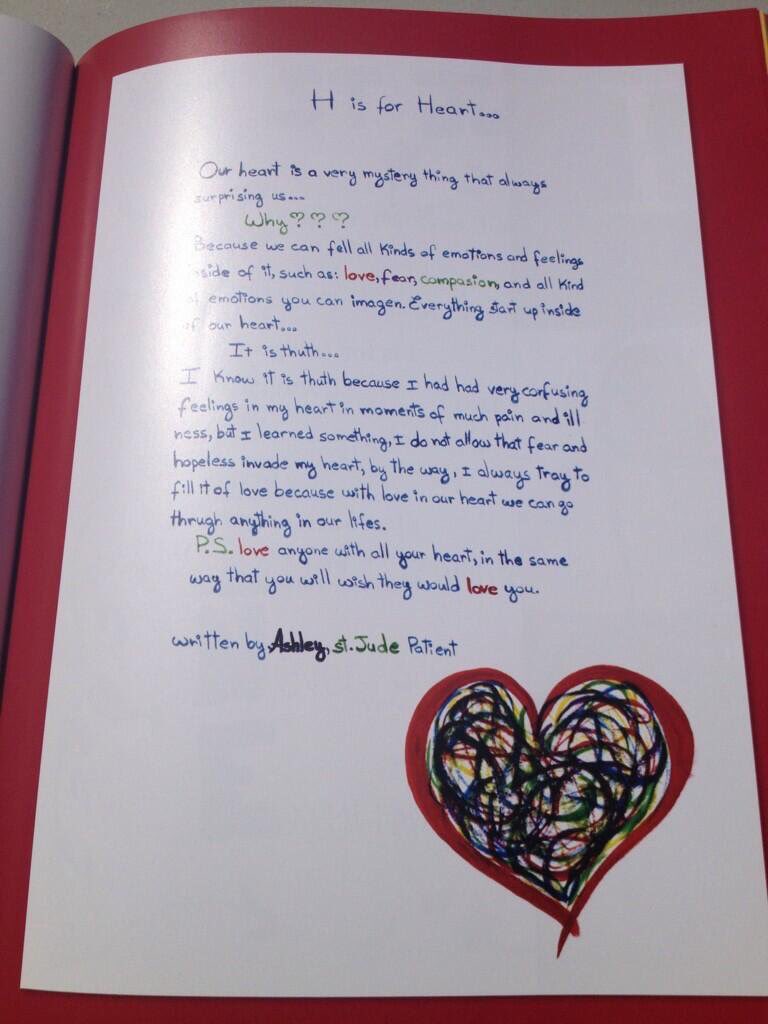 H is for Heart...
Our heart is a very mystery thing that always
surprising us...
Why???
Because we can fell all kinds of emotions and feelings
inside of it, such as: love, fear, compasion, and all kind
of emotions you can imagen. Everything start up inside
of our heart...
It is thuth...
I Know it is thuth because I had had very confusing
feelings in my heart in moments of much pain and ill
ness, but I learned something, I do not allow that fear and
hopeless invade my heart, by the way, I always tray to
fill it of love because with love in our heart we can go
thrugh anything in our lifes.
P.S. love anyone with all your heart, in the same
way that you will wish they would love you.
written by, Ashley, st. Jude Patient